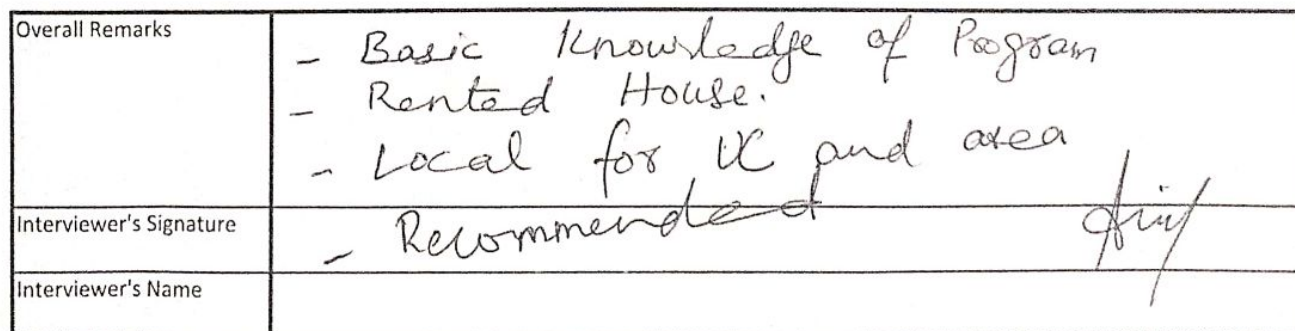 Overall Remarks
- Basic Knowledge of Program
- Rented House.
- Local for UC and area
Interviewer's Signature
- Recommended
Interviewer's Name